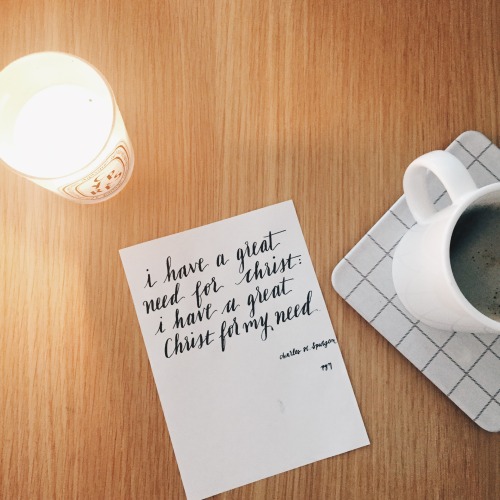 i have a great
need for christ:
i have a great
Christ for my need
Charles H. Spurgeon